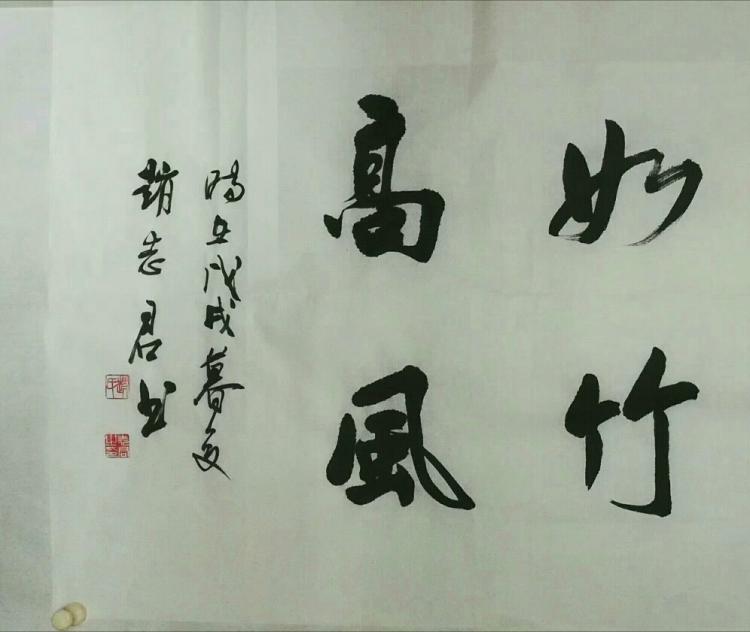 如竹
高風
時在戊戌暮夏
趙志君书